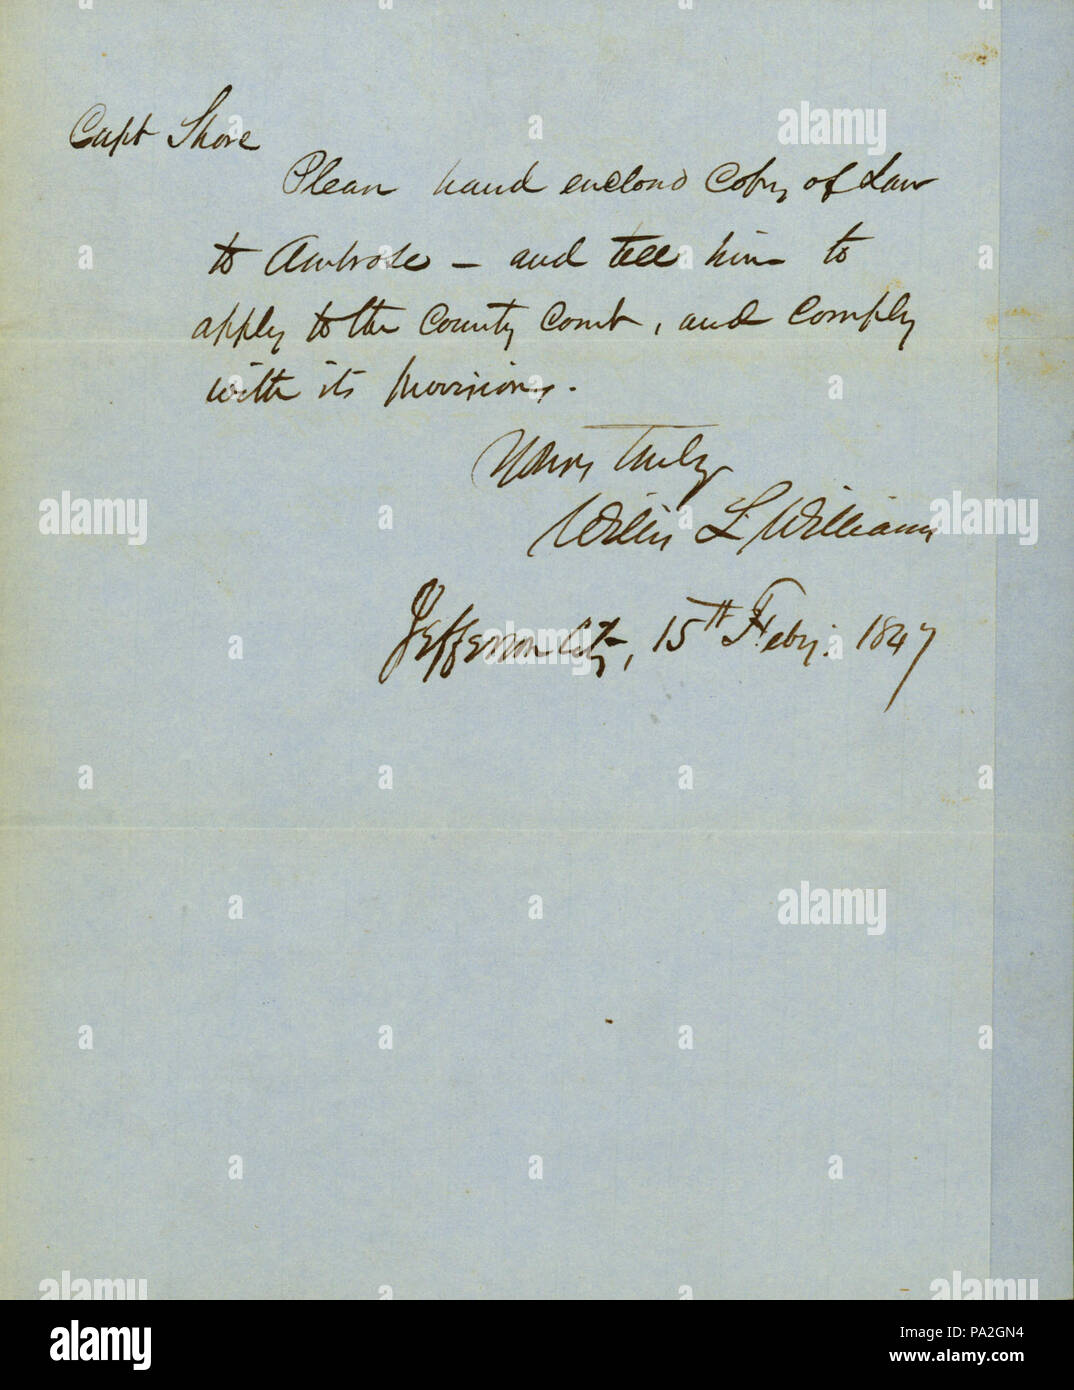 Capt Shore
Please hand enclosed Copy of Law
to Ambrose – and tell him to
apply to the County Court, and Comply
with its provisions.
Yours Truly
Willis L Williams
Jefferson City, 15TH Feby. 1847
alamy
Image ID: PA2GN4
www.alamy.com